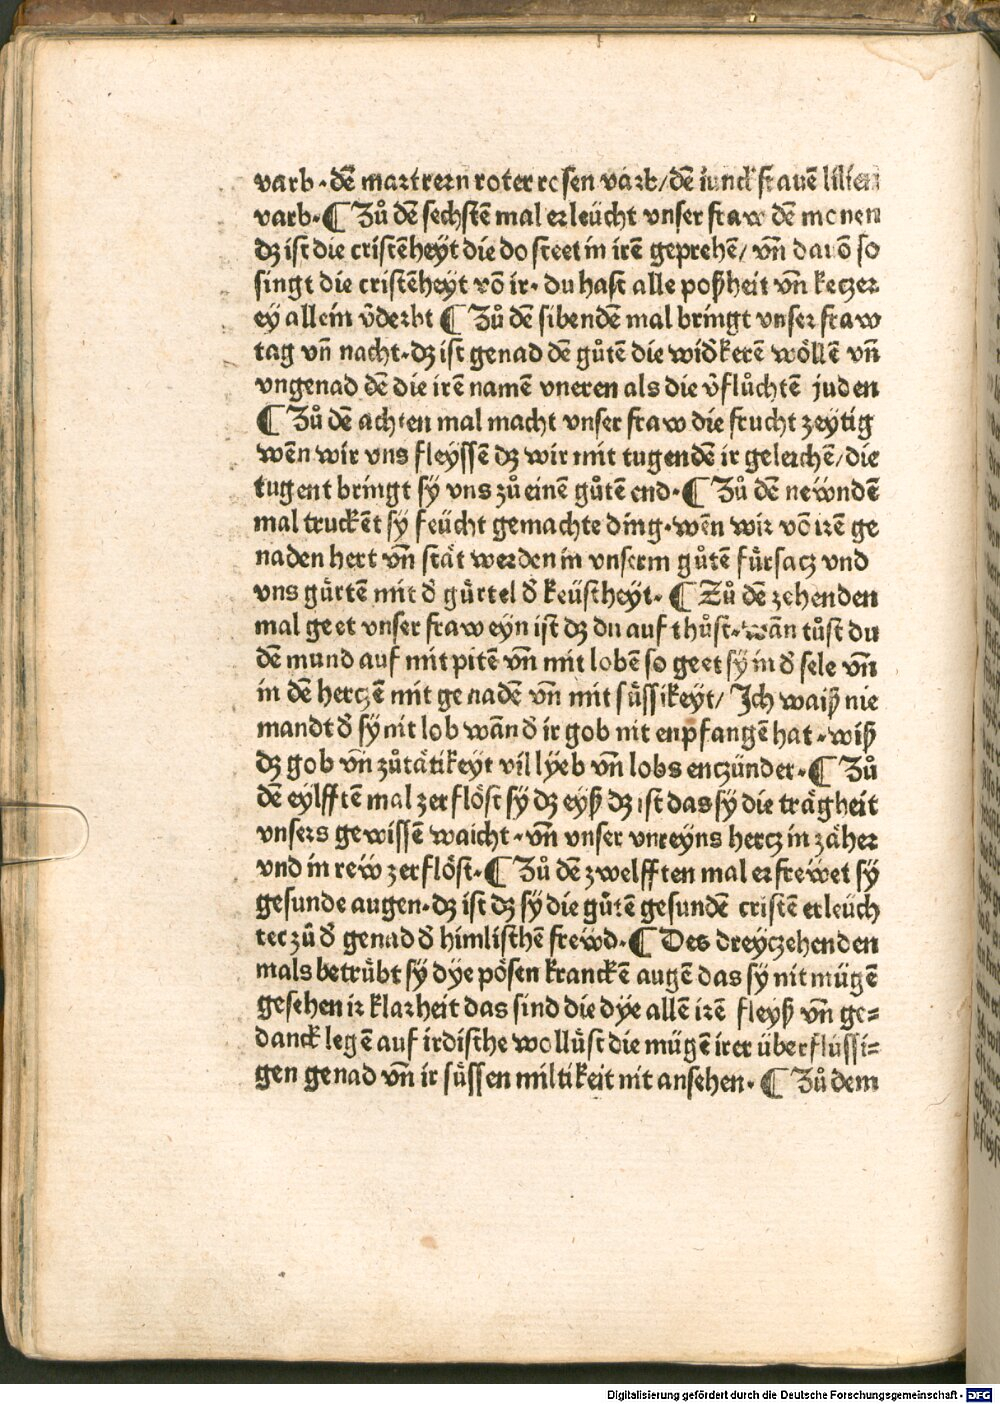 varb · dē martrern roter rosen varb/dē iunckfrauē lilien
varb · ¶ Zů dē sechstē mal erleücht vnser fraw dē monen
dz ist die cristēheyt die do steet in irē geprehē/ vn̄ dauō so
singt die cristēheyt vō ir · du hast alle poßheit vn̄ keczer
ey allein v̄derbt ¶ Zů dē sibendē mal bringt vnser fraw
tag vn̄ nacht · dz ist genad dē gůtē die widkerē wöllē vn̄
vngenad dē die irē namē vneren als die v̄flůchtē juden
¶ Zů dē achten mal macht vnser fraw die frucht zeytig
wēn wir vns fleyssē dz wir mit tugendē ir geleichē/die
tugent bringt sÿ vns zů einē gůtē end · ¶ Zů dē neẅndē
mal truckēt sÿ feücht gemachte ding · wēn wir vō irē ge
naden hert vn̄ stät werden in vnserm gůtē fürsacz vnd
vns gürtē mit d̄ gürtel d̄ keüscheyt · ¶ Zů dē zehenden
mal geet vnser fraw eyn ist dz du auf thůst · wān tůst du
dē mund auf mit pitē vn̄ mit lobē so geet sÿ in d̄ sele vn̄
in dē herczē mit genadē vn̄ mit süssikeyt/ Ich waiß nie
mandt d̄ sÿ nit lob wān d̄ ir gob nit enpfangē hat · wiß
dz gob vn̄ zůtätikeyt vil lÿeb vn̄ lobs enczündet · ¶ Zů
dē eylfftē mal zerflöst sÿ dz eyß dz ist das sÿ die trägheit
vnsers gewissē waicht · vn̄ vnser vnreyns hercz in zäher
vnd in reẅ zerflöst · ¶ Zů dē zwelfften mal erfrewet sÿ
gesunde augen · dz ist dz sÿ die gůtē gesundē cristē erleüch
tet zů d̄ genad d̄ himlischē freẅd · ¶ Des dreyczehenden
mals betrübt sÿ dÿe pösen kranckē augē das sÿ nit mügē
gesehen ir klarheit das sind die dÿe allē irē fleyß vn̄ ge=
danck legē auf irdische wollüst die mügē irer überflüssi=
gen genad vn̄ ir süssen miltikeit nit ansehen · ¶ Zů dem
Digitalisierung gefördert durch die Deutsche Forschungsgemeinschaft - DFG